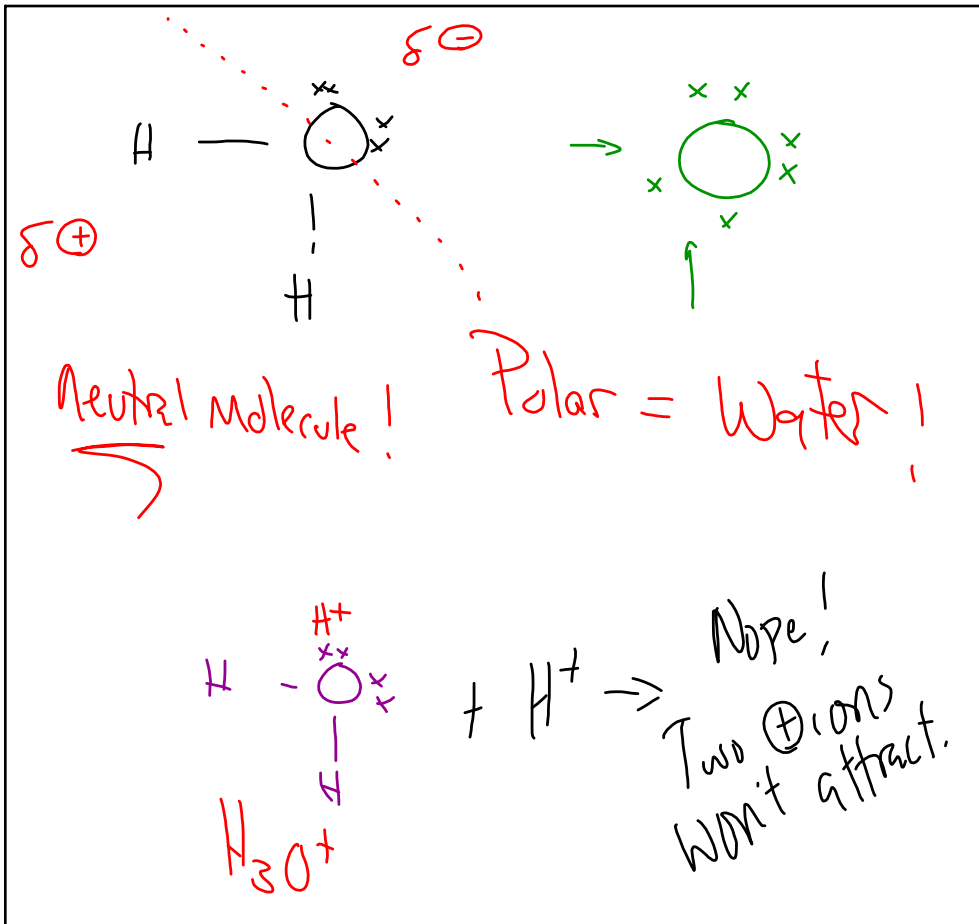 δ⊖
xx
H — O x
x
δ⊕
H
→ x x
x O x
x
x
Neutral Molecule!
Polar = Water!
H+
xx
H - O x
x
H
H3O+
+ H+ → Nope!
Two ⊕ ions
won't attract.